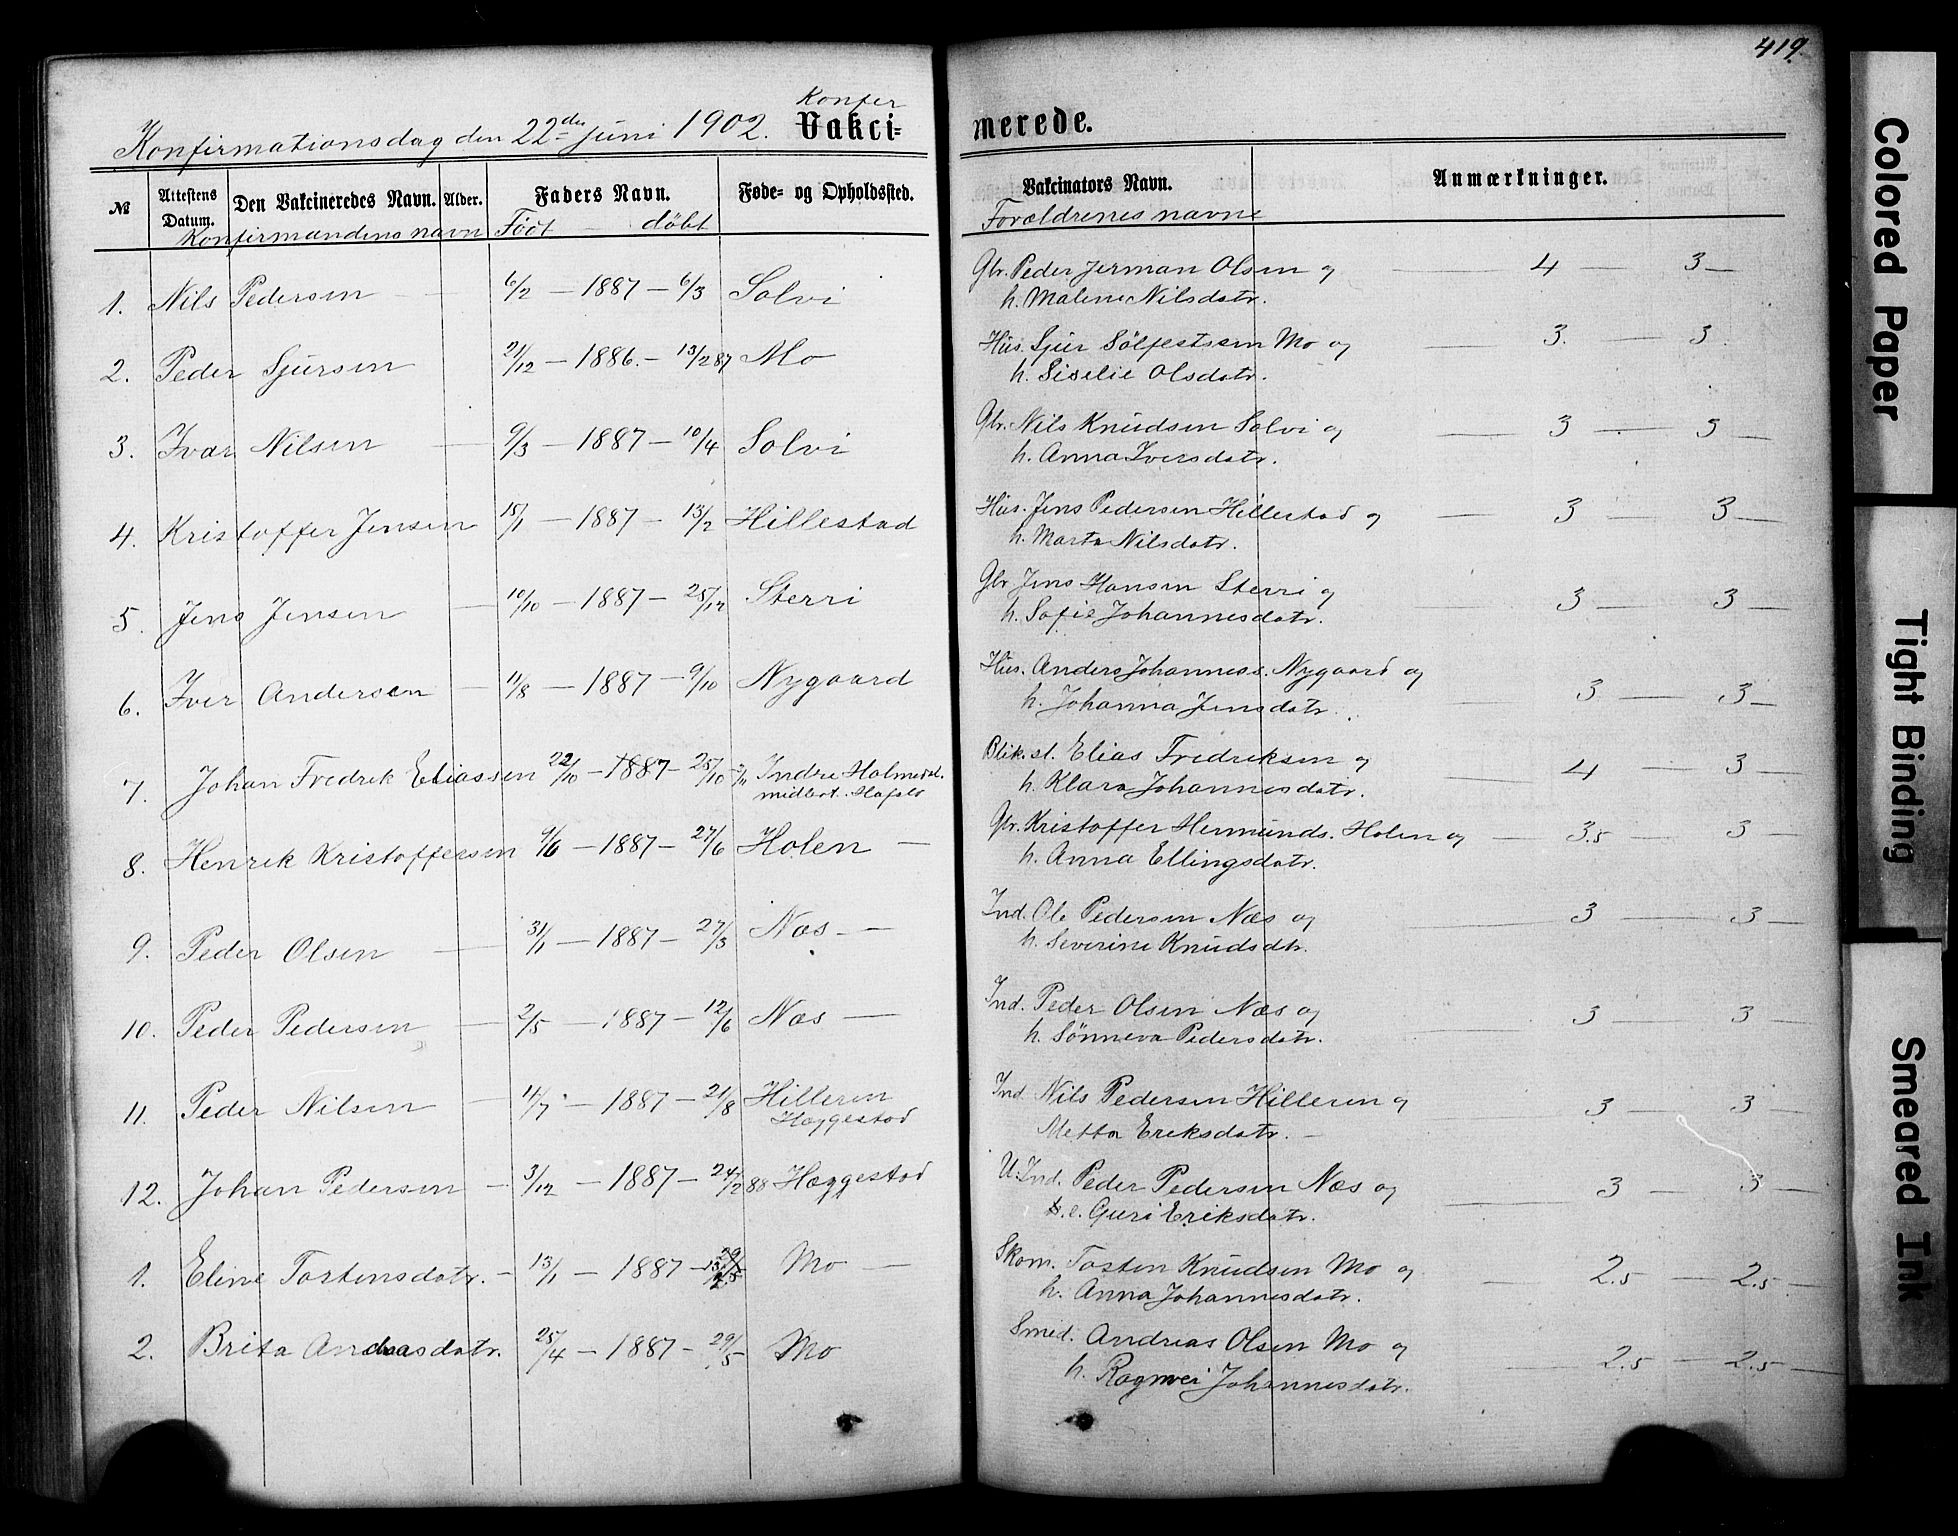 419.
Konfer
Konfirmationsdag den 22de Juni 1902. Vakci=
merede.
№ Attestens Datum. Den Vakcineredes Navn. Alder. Faders Navn. Føde- og Opholdssted.
Konfirmandens navn Födt — döbt
Vakcinators Navn. Anmærkninger.
Forældrenes navne
1. Nils Pedersen — 6/2 — 1887 — 6/3 Solvi
Gbr. Peder Jerman Olsen og — 4 — 3 —
h. Malene Nilsdatr.
2. Peder Sjursen 21/12 — 1886. — 13/2 87 Mo
Hus. Sjur Sölfestsen Mo og — 3. — 3.
h. Siselie Olsdatr.
3. Ivar Nilsen — 9/3 — 1887 — 10/4 Solvi
Gbr. Nils Knudsen Solvi og — 3 — 3 —
h. Anna Iversdatr.
4. Kristoffer Jensen 15/1 — 1887 — 13/2 Hillestad
Hus. Jens Pedersen Hillestad og — 3 — 3 —
h. Marta Nilsdatr.
5. Jens Jensen — 10/10 — 1887 — 25/12 Sterri
Gbr Jens Hansen Sterri og — 3 — 3 —
h. Sofie Johannesdatr.
6. Iver Andersen — 11/8 — 1887 — 9/10 Nygaard
Hus. Anders Johanness. Nygaard og — 3 — 3 —
h. Johanna Jensdatr.
7. Johan Fredrik Eliassen 22/10 — 1887 — 25/10 Indre Holmedal.
midlert. Hafslo
Blik.sl. Elias Fredriksen og — 4 — 3 —
h. Klara Johannesdatr.
8. Henrik Kristoffersen 9/6 — 1887 — 27/6 Holen —
Gbr. Kristoffer Hermunds. Holen og — 3.5 — 3 —
h. Anna Ellingsdatr.
9. Peder Olsen — 31/1 — 1887 — 27/3 Næs —
Ind. Ole Pedersen Næs og — 3 — 3 —
h. Severine Knudsdtr.
10. Peder Pedersen — 2/5 — 1887 — 12/6 Næs —
Ind. Peder Olsen Næs og — 3 — 3 —
h. Sönneva Pedersdatr.
11. Peder Nilsen — 11/7 — 1887 — 21/8 Hilleren
Hæggestad
Ind. Nils Pedersen Hilleren og — 3 — 3 —
Metta Eriksdatr. —
12. Johan Pedersen — 3/12 — 1887 — 24/2 88 Hæggestad
U. Ind. Peder Pedersen Næs og — 3 — 3 —
Guri Eriksdatr.
1. Eline Tostensdatr. — 13/1 — 1887 — Mo —
Skom. Tosten Knudsen Mo og — 2.5 — 2.5 —
h. Anna Johannesdatr.
2. Brita Andreasdatr. 25/4 — 1887 — 29/5 Mo
Smed. Andreas Olsen Mo og — 2.5 — 2.5 —
h. Ragnvei Johannesdatr.
Colored Paper
Tight Binding
Smeared Ink